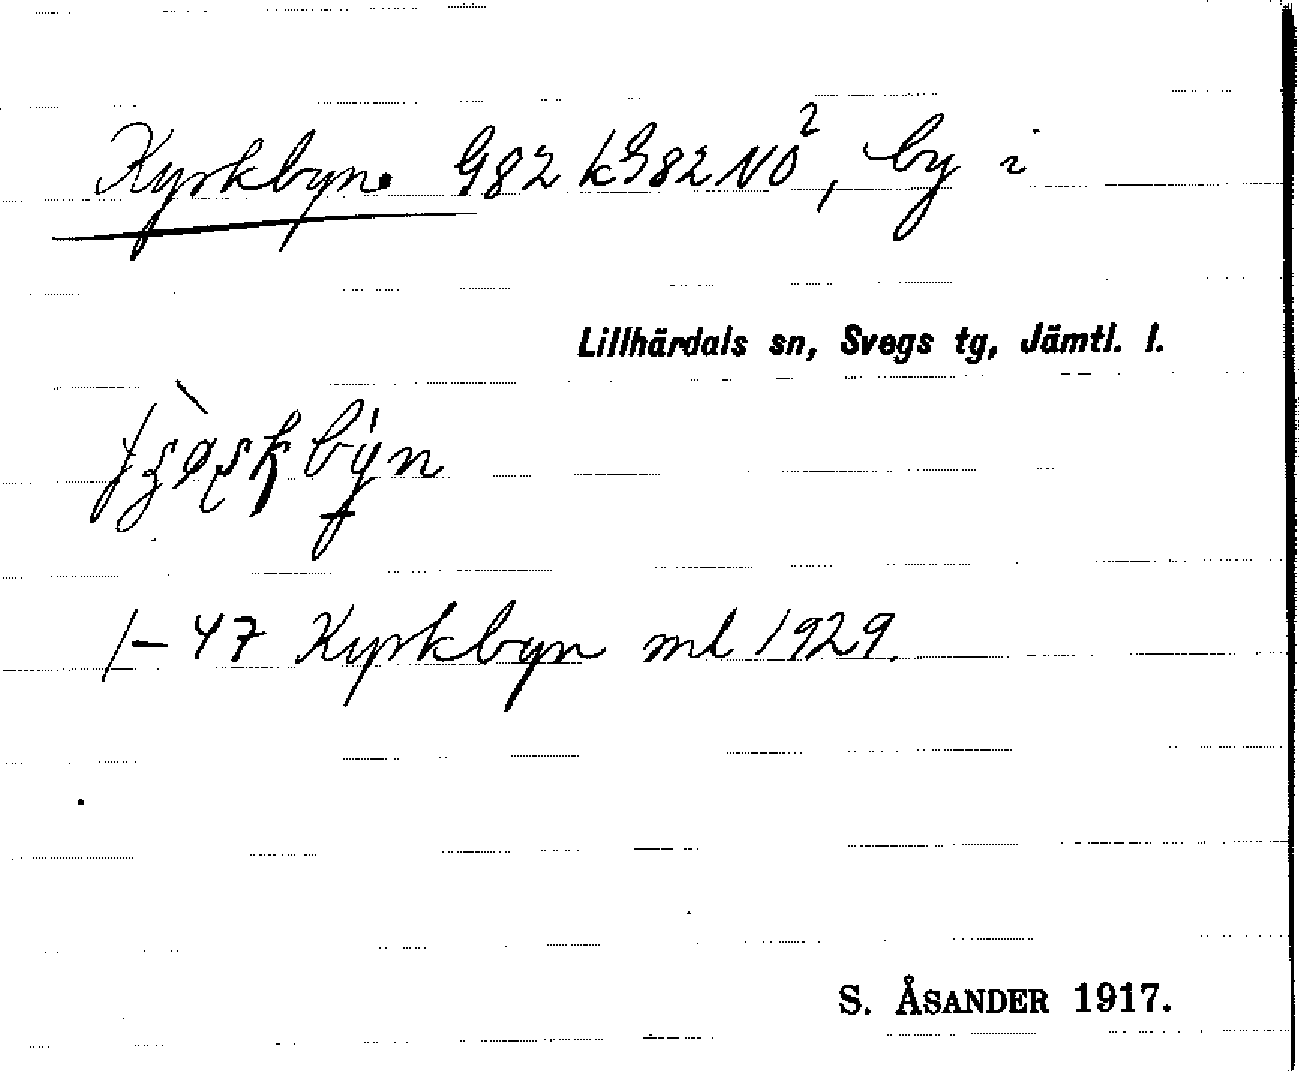 Kyrkbyn. G82 kG82 NO², by i
Lillhärdals sn, Svegs tg, Jämtl. l.
1–47 Kyrkbyn ml 1929.
S. ÅSANDER 1917.